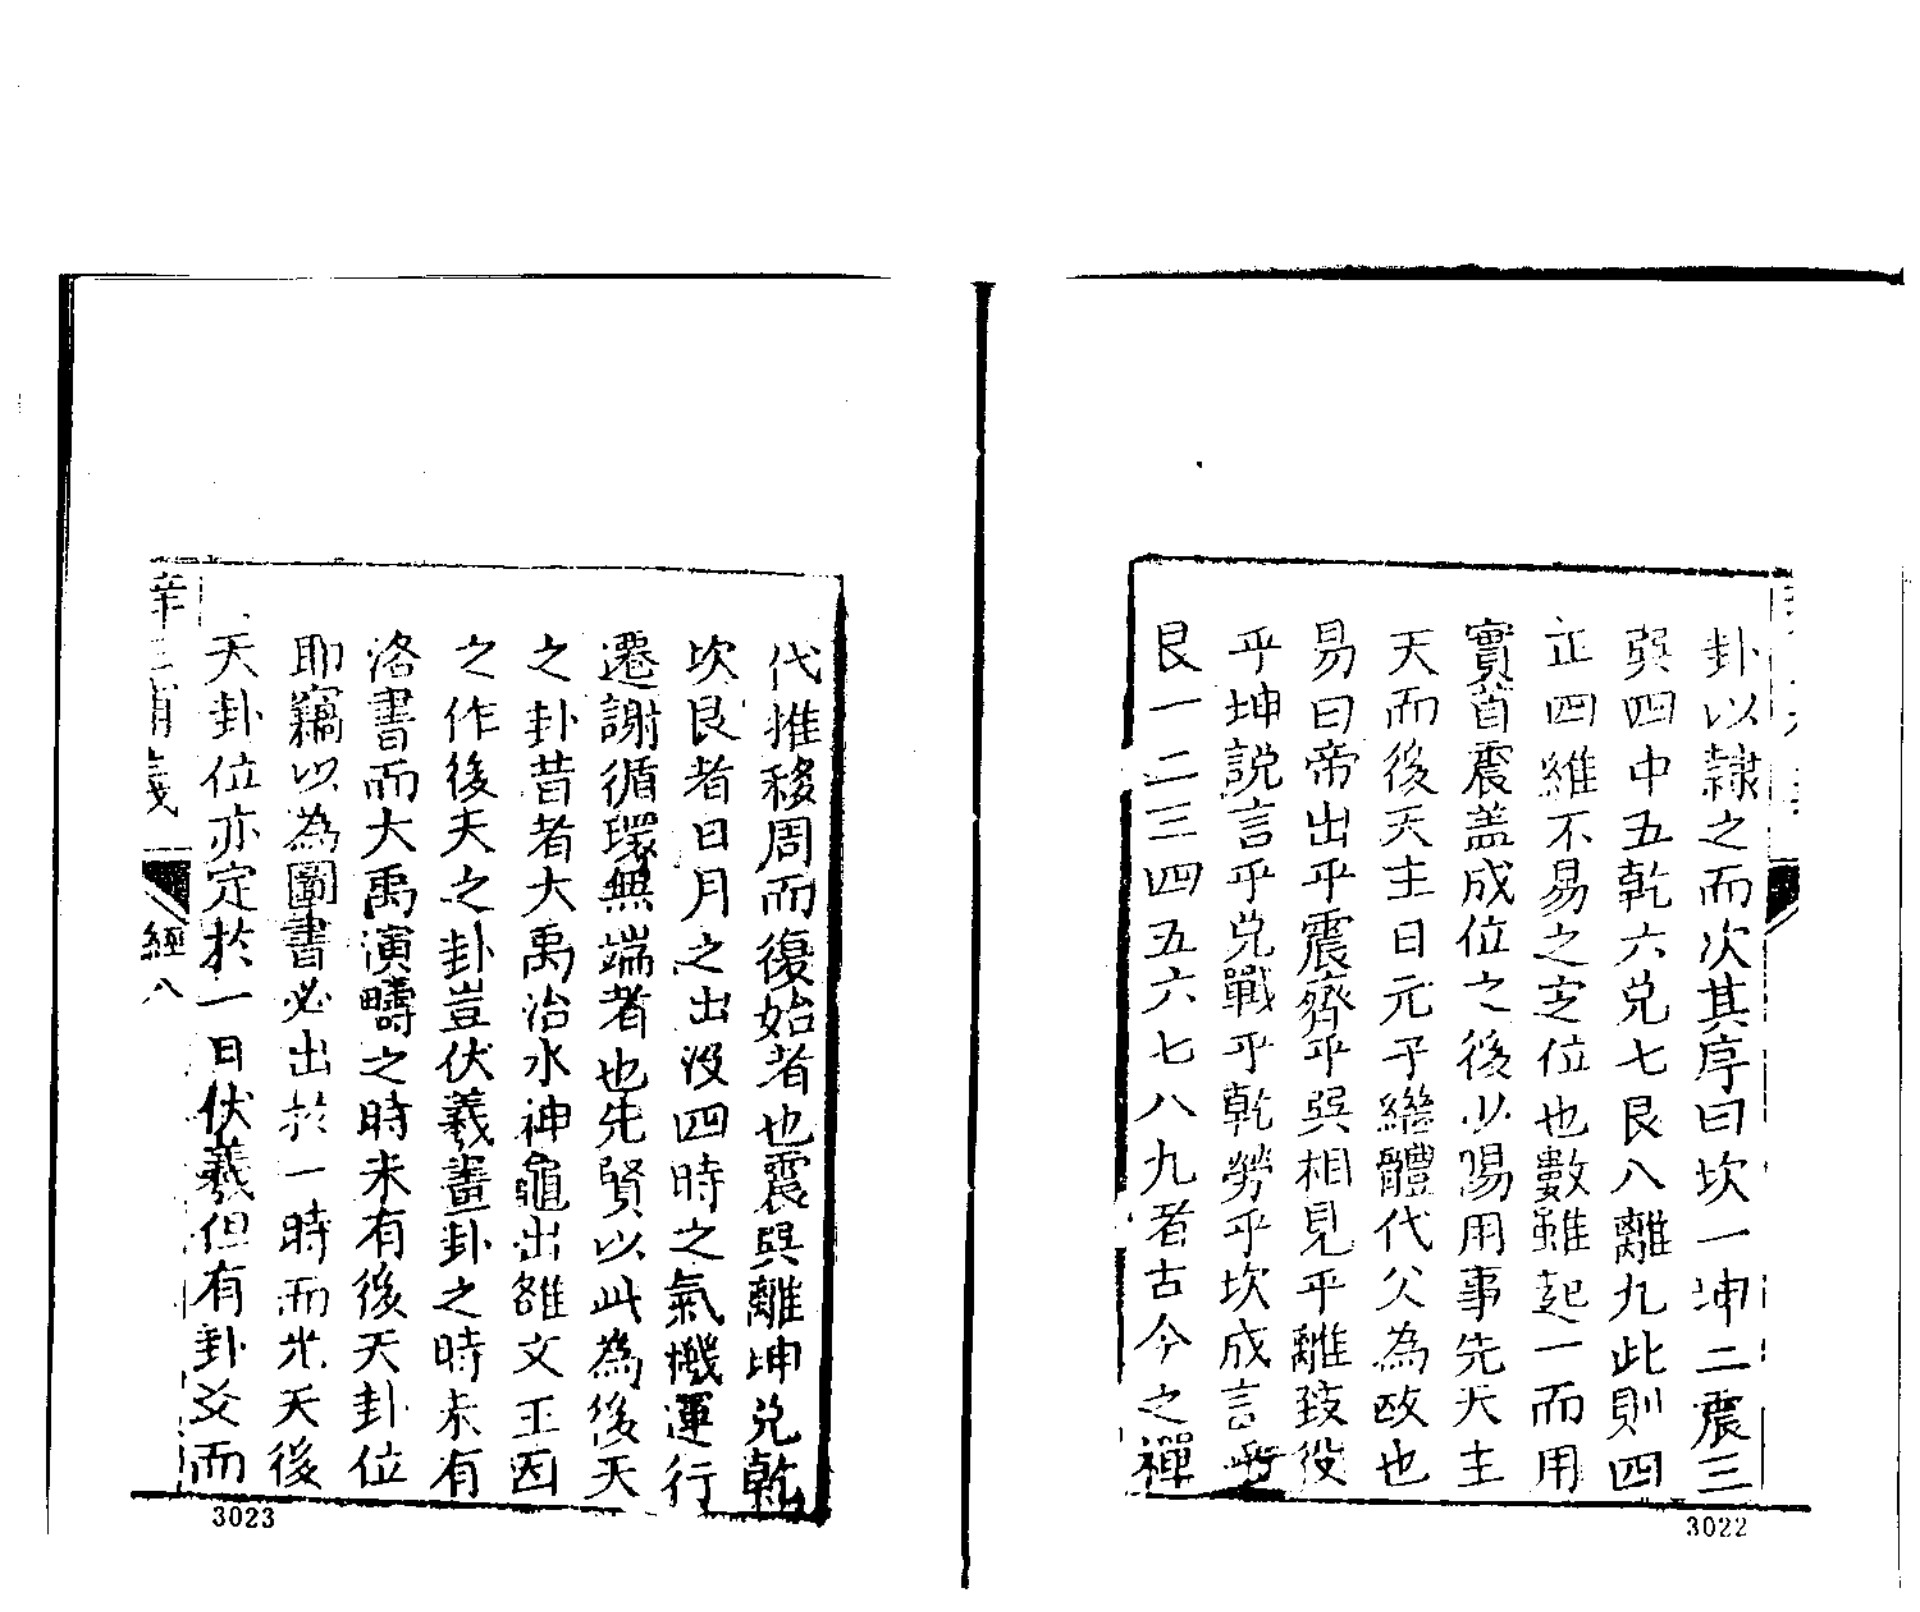 卦以隷之而次其序曰坎一坤二震三
巽四中五乾六兑七艮八離九此則四
正四維不易之定位也數雖起一而用
實首震盖成位之後少陽用事先天主
天而後天主日元子繼體代父為政也
易曰帝出乎震齊乎巽相見乎離致役
乎坤説言乎兑戰乎乾勞乎坎成言乎
艮一二三四五六七八九者古今之禪
3022
代推移周而復始者也震巽離坤兑乾
坎艮者日月之出没四時之氣機運行
遷謝循環無端者也先賢以此為後天
之卦昔者大禹治水神龜出雒文王因
之作後天之卦豈伏羲畫卦之時未有
洛書而大禹演疇之時未有後天卦位
耶竊以為圖書必出於一時而先天後
天卦位亦定於一日伏羲但有卦爻而
經八
3023